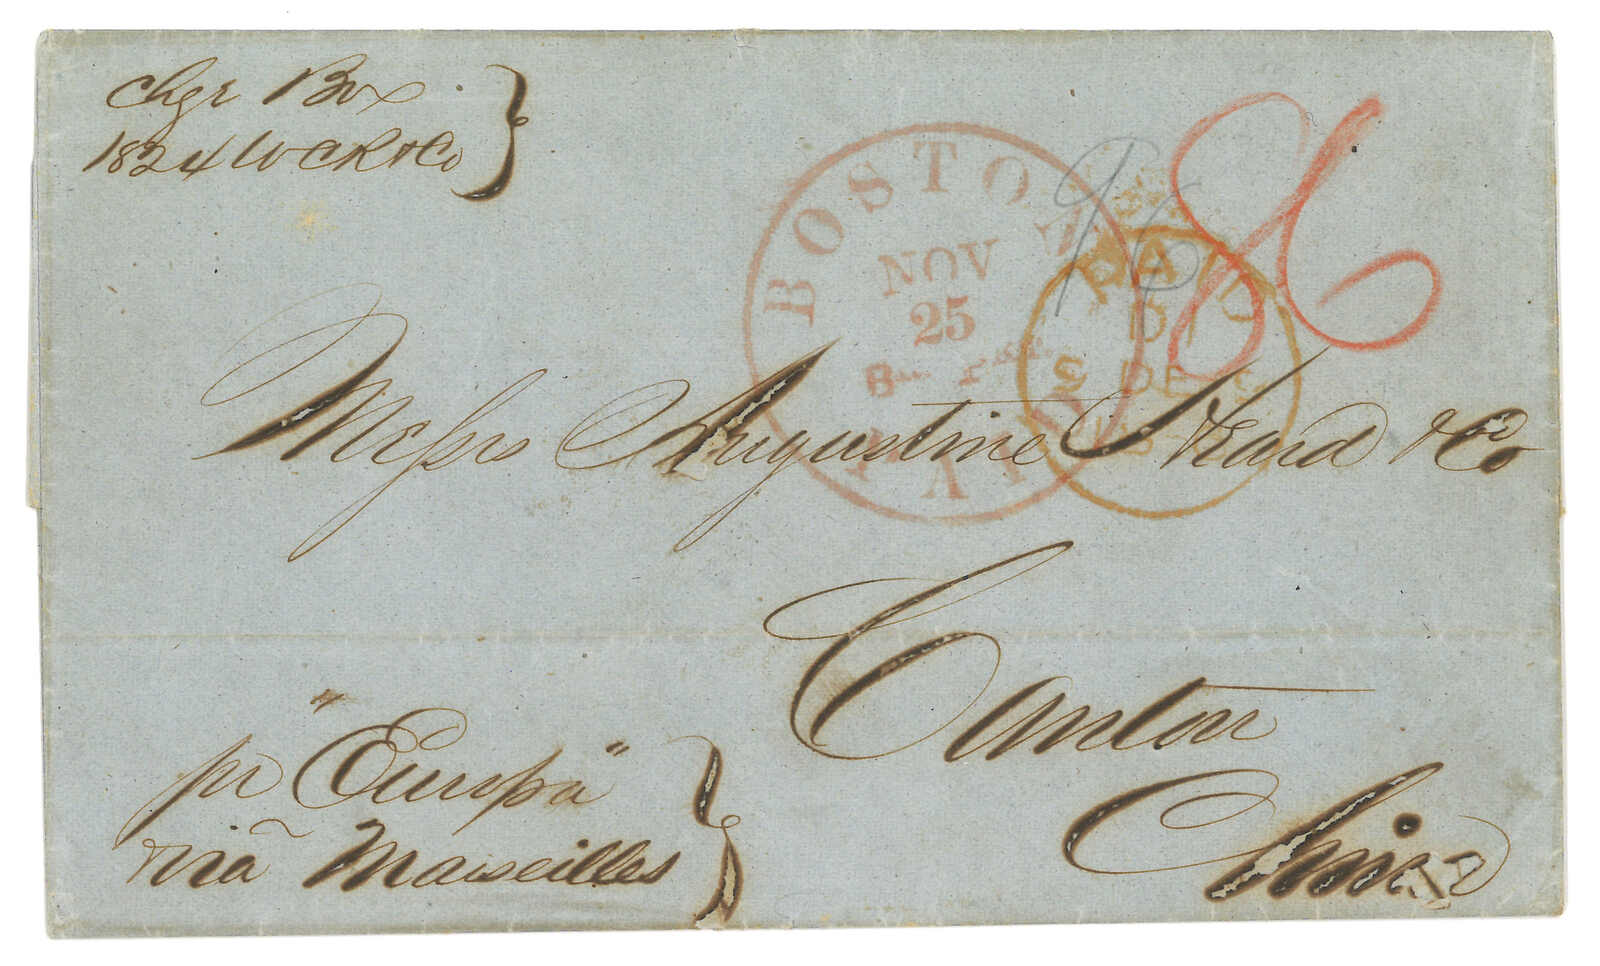 Chge Box
1824 W C R & Co
96
86
BOSTON
NOV
25
Br. Pkt.
PAID
DE
Messrs Augustine Heard & Co
Canton
China
pr "Europa"
viã Marseilles